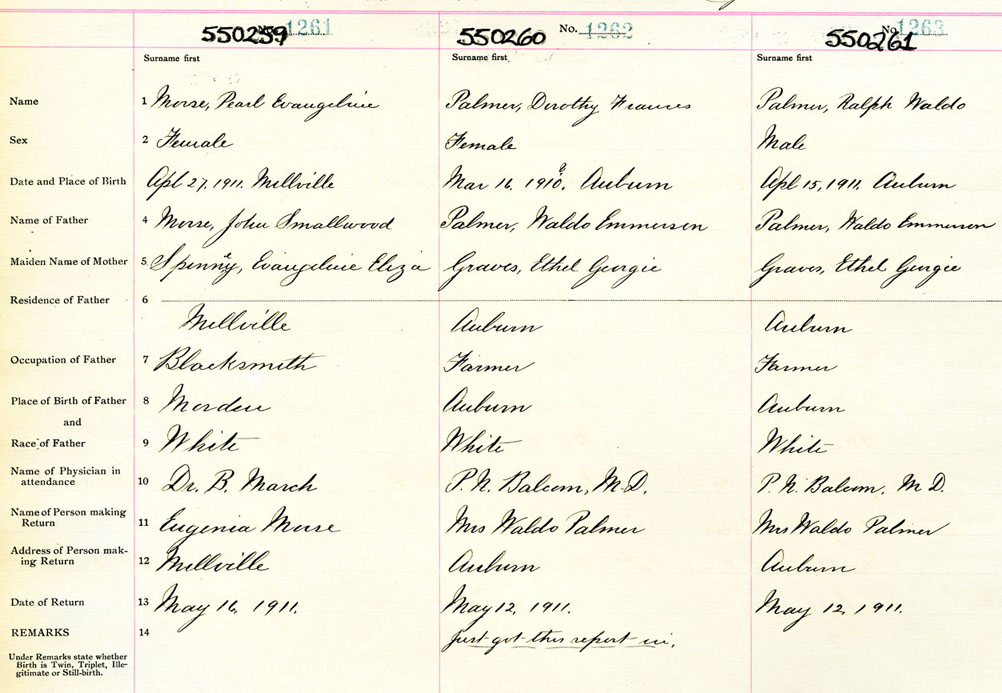 550259 No. 1261 550260 No. 1262 550261 No. 1263
Surname first Surname first Surname first
Name 1 Morse, Pearl Evangeline Palmer, Dorothy Frances Palmer, Ralph Waldo
Sex 2 Female Female Male
Date and Place of Birth 3 Apl 27, 1911. Millville Mar 16, 1910? Auburn Apl 15, 1911, Auburn
Name of Father 4 Morse, John Smallwood Palmer, Waldo Emmerson Palmer, Waldo Emmerson
Maiden Name of Mother 5 Spinny, Evangeline Eliza Graves, Ethel Georgie Graves, Ethel Georgie
Residence of Father 6
Millville Auburn Auburn
Occupation of Father 7 Blacksmith Farmer Farmer
Place of Birth of Father 8 Morden Auburn Auburn
and
Race of Father 9 White White White
Name of Physician in
attendance 10 Dr. B. March P. N. Balcom, M.D. P. N. Balcom, M D.
Name of Person making
Return 11 Eugenia Morse Mrs Waldo Palmer Mrs Waldo Palmer
Address of Person mak-
ing Return 12 Millville Auburn Auburn
Date of Return 13 May 16, 1911. May 12, 1911. May 12, 1911.
REMARKS 14 Just got this report in.
Under Remarks state whether
Birth is Twin, Triplet, Ille-
gitimate or Still-birth.